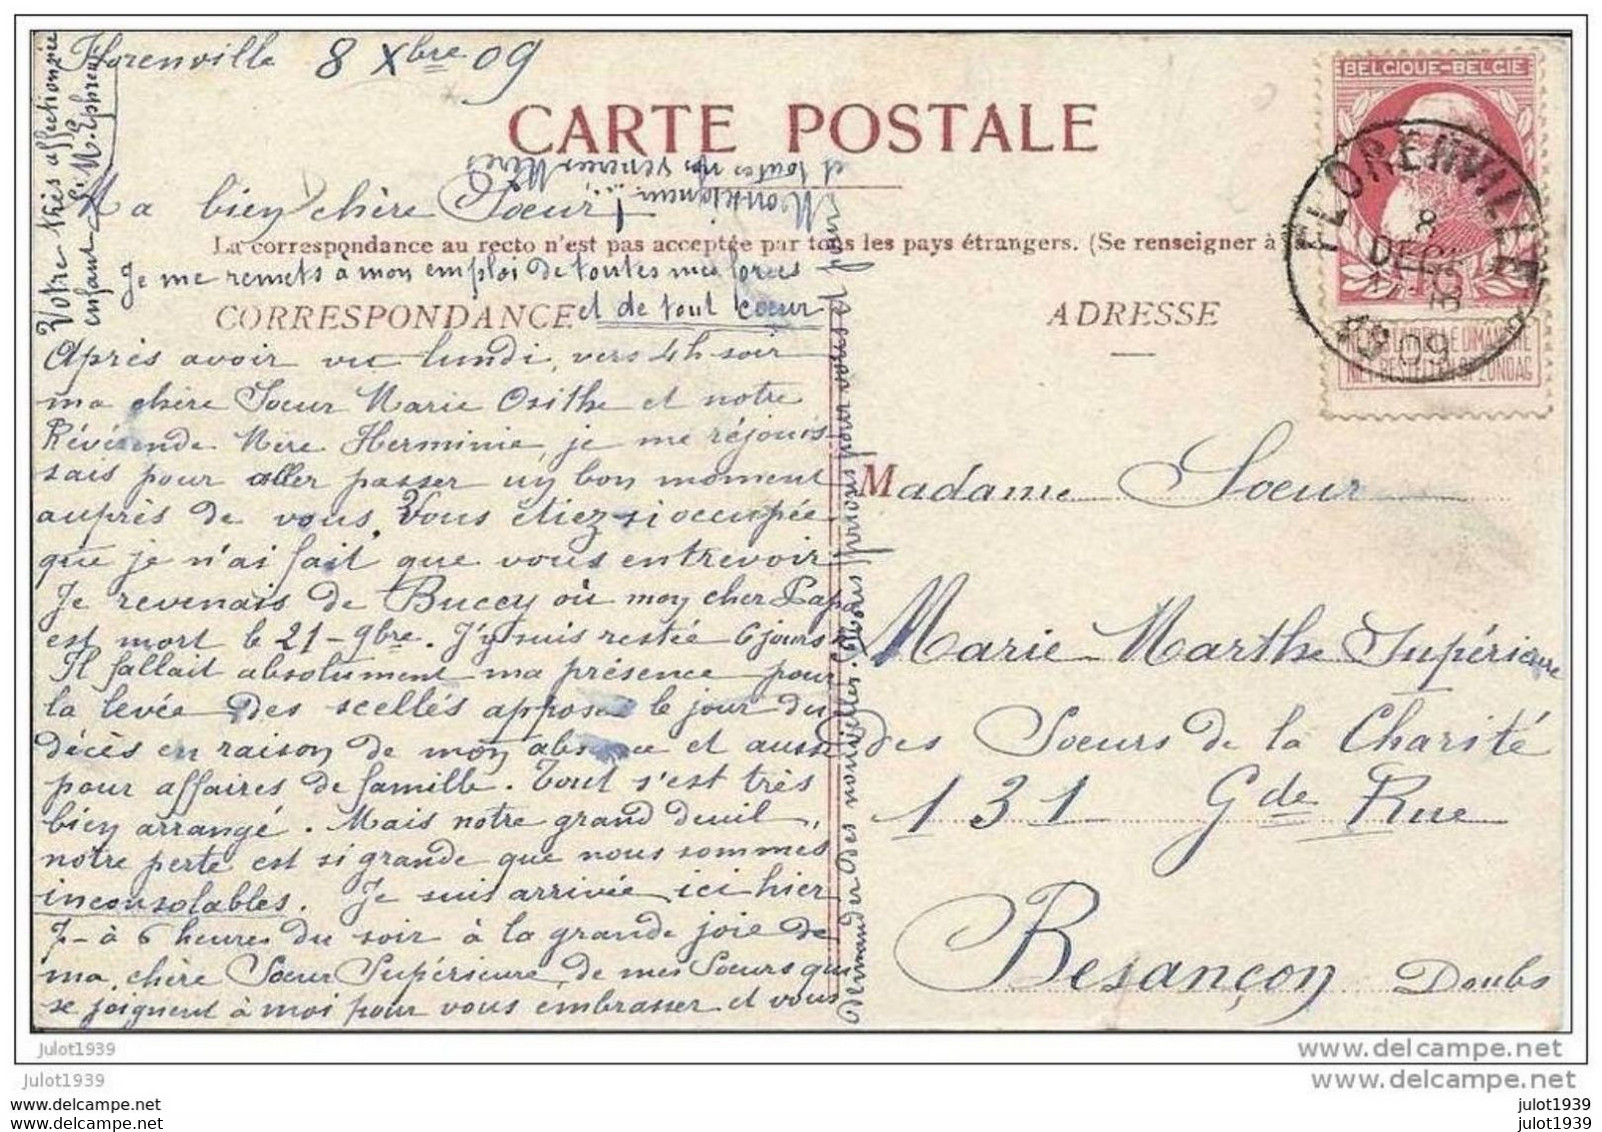 Florenville 8 Xbre 09
CARTE POSTALE
BELGIQUE-BELGIE
FLORENVILLE
8
DEC
09
NIET BESTELLEN OP ZONDAG
Ma bien chère Soeur,
La correspondance au recto n'est pas acceptée par tous les pays étrangers. (Se renseigner à la
Je me remets à mon emploi de toutes mes forces
et de tout coeur
CORRESPONDANCE
ADRESSE
Après avoir vu lundi, vers 4h soir
ma chère Soeur Marie Osithe et notre
Révérende Mère Herminie, je me réjouis-
sais pour aller passer un bon moment
auprès de vous. Vous étiez si occupée
que je n'ai fait que vous entrevoir
Je revenais de Bucey où mon cher Papa
est mort le 21-9bre. J'y suis restée 6 jours
Il fallait absolument ma présence pour
la levée des scellés apposés le jour du
décès en raison de mon absence et aussi
pour affaires de famille. Tout s'est très
bien arrangé. Mais notre grand deuil,
notre perte est si grande que nous sommes
inconsolables. Je suis arrivée ici hier
7- à 6 heures du soir à la grande joie de
ma chère Soeur Supérieure, de mes Soeurs qui
se joignent à moi pour vous embrasser et vous
demander des nouvelles. Nous prions pour vous et pour
Monseigneur
et toutes nos vénérées Mères
Votre très affectionnée
enfant Sr M. Ephrem
Madame Soeur
Marie Marthe Supérieure
des Soeurs de la Charité
131 Gde Rue
Besançon Doubs
julot1939
www.delcampe.net
julot1939
www.delcampe.net
www.delcampe.net
julot1939
www.delcampe.net
julot1939